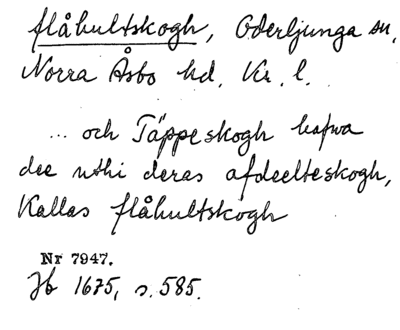 flåhultskogh, Oderljunga sn,
Norra Åsbo hd, Kr. l.
... och Täppeskogh hafwa
dee uthi deras afdeelteskogh,
Kallas flåhultskogh
Nr 7947.
Jb 1675, s. 585.